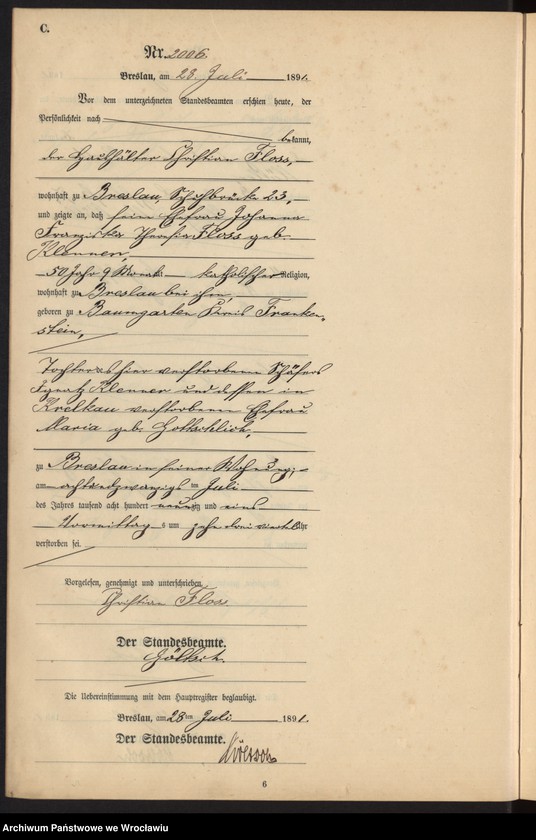 C.
Nr. 2006.
Breslau, am 28. Juli 1891.
Vor dem unterzeichneten Standesbeamten erschien heute, der
Persönlichkeit nach
bekannt,
der Haushälter Christian Floss,
wohnhaft zu Breslau Schuhbrücke 23,
und zeigte an, daß seine Ehefrau Johanna
Franziska Theresia Floss geb.
Klenner,
50 Jahr 9 Monate katholischer Religion,
wohnhaft zu Breslau bei ihm,
geboren zu Baumgarten Kreis Franken-
stein,
Tochter des hier verstorbenen Schäfers
Ignatz Klenner und dessen in
Krelkau verstorbenen Ehefrau
Maria geb. Gottschlich,
zu Breslau in seiner Wohnung,
am achtundzwanzigsten Juli
des Jahres tausend acht hundert neunzig und eins
Vormittags um zehn dreiviertel Uhr
verstorben sei.
Vorgelesen, genehmigt und unterschrieben
Christian Floss
Der Standesbeamte.
Die Uebereinstimmung mit dem Hauptregister beglaubigt.
Breslau, am 28ten Juli 1891.
Der Standesbeamte.
6
Archiwum Państwowe we Wrocławiu